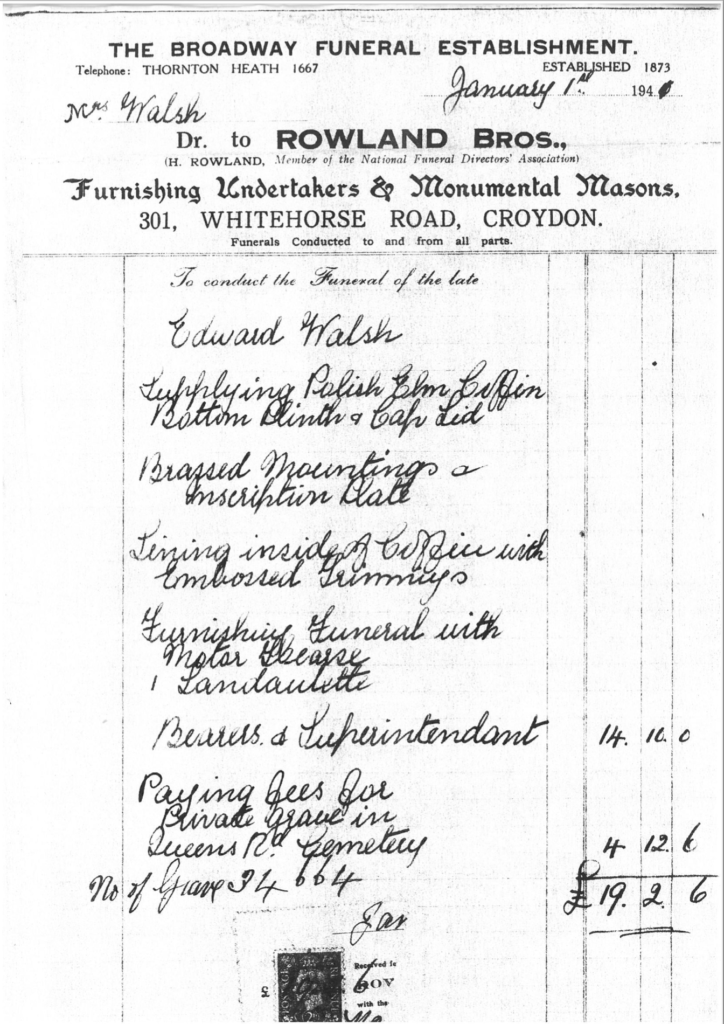 THE BROADWAY FUNERAL ESTABLISHMENT.
Telephone: THORNTON HEATH 1667 ESTABLISHED 1873
January 1st 194
Mrs Walsh
Dr. to ROWLAND BROS.,
(H. ROWLAND, Member of the National Funeral Directors' Association)
Furnishing Undertakers & Monumental Masons,
301, WHITEHORSE ROAD, CROYDON.
Funerals Conducted to and from all parts.
To conduct the Funeral of the late
Edward Walsh
Supplying Polish Elm Coffin
Bottom Plinth & Cap Lid
Brassed Mountings &
Inscription Plate
Lining inside of Coffin with
Embossed Trimmings
Furnishing Funeral with
Motor Hearse
1 Landaulette
Bearers & Superintendant 14. 10. 0
Paying fees for
Private Grave in
Queens Rd. Cemetery 4 12. 6
No of Grave 34664
£ 19. 2. 6
Jan
Received
£
ROW
with the
POSTAGE